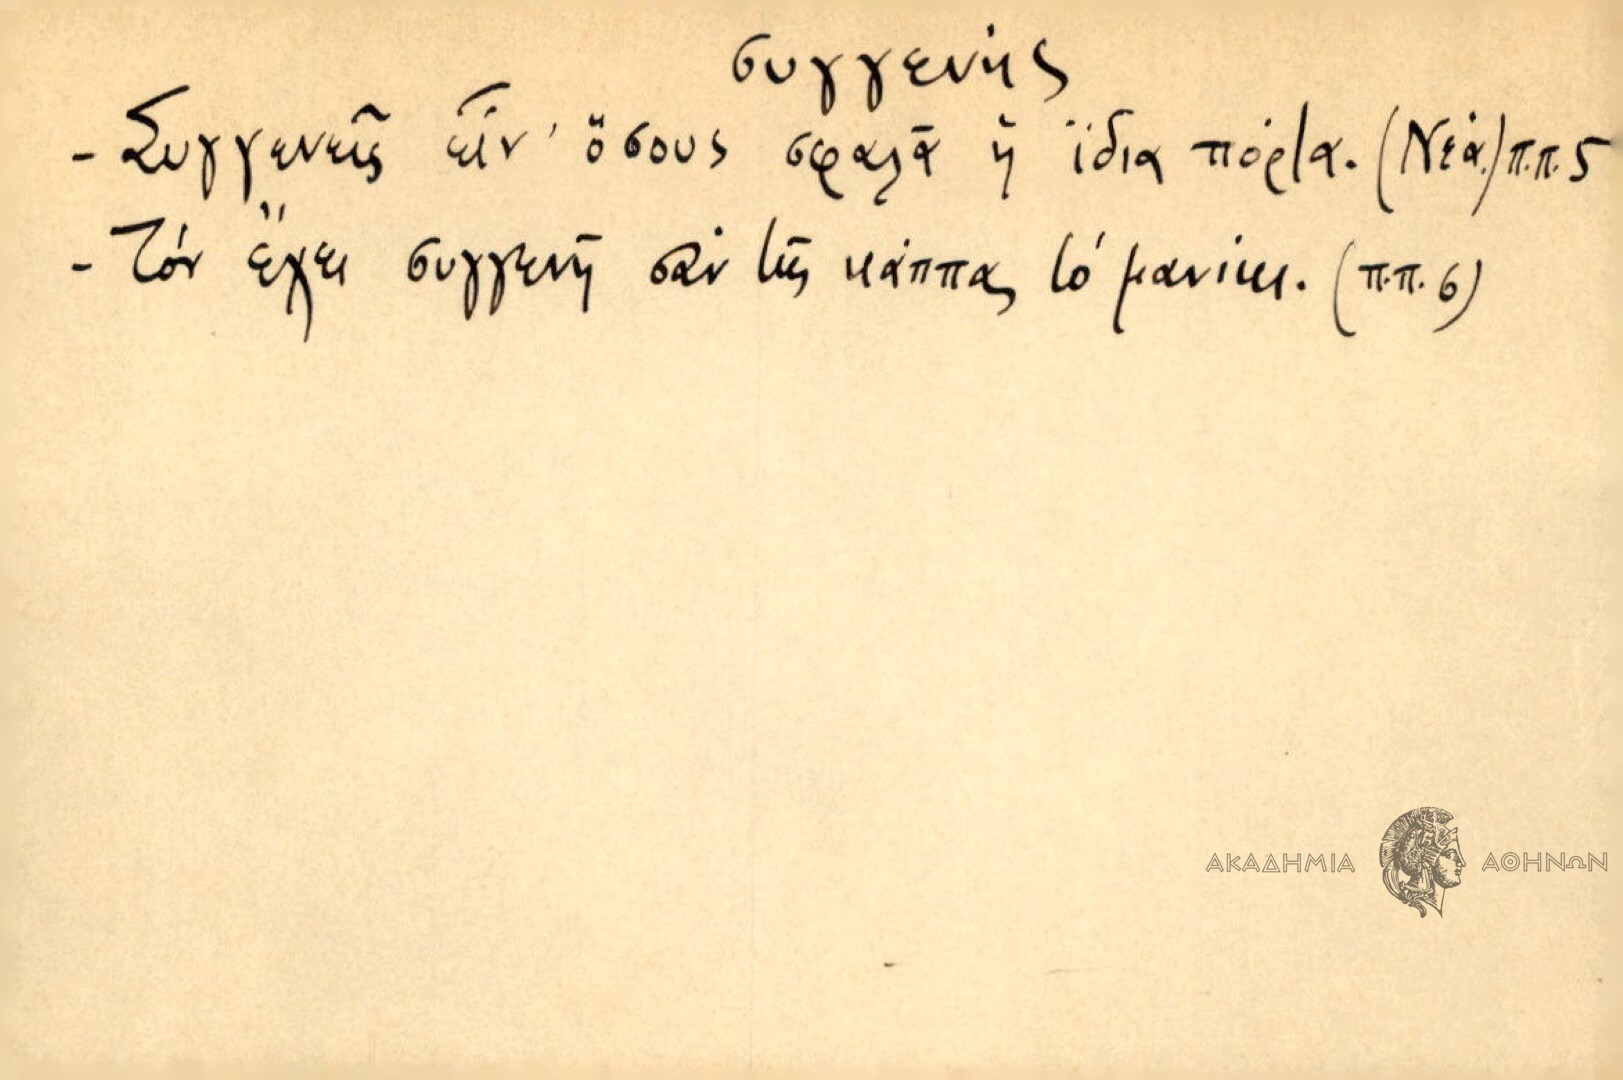 συγγενής
- Συγγενεῖς εἶν' ὅσους σφαλᾶ ἡ ἴδια πόρτα. (Νεά.) π.π. 5
- Τόν ἔχει συγγενῆ σάν τῆς κάππας τό μανίκι. (π.π. 6)
ΑΚΑΔΗΜΙΑ ΑΘΗΝΩΝ